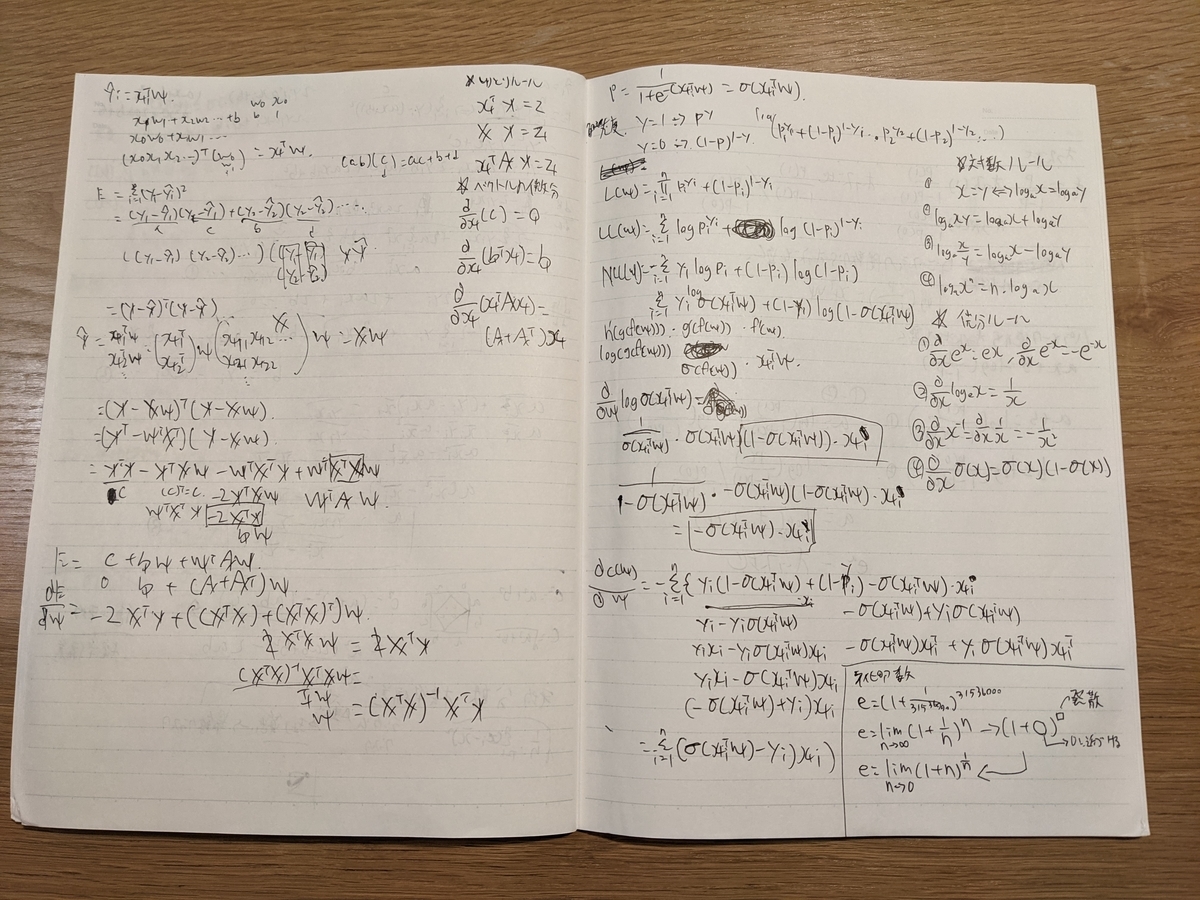 ŷi = xiᵀw.
x1w1+x2w2…+b
w0 x0
b 1
x0w0+x1w1…
(x0x1x2…)ᵀ(w0⋮) = xiᵀw.
(a b)(c d) = ac+bd
E = Σ(yi-ŷi)²
= (y1-ŷ1)(y1-ŷ1)+(y2-ŷ2)(y2-ŷ2)….
a c b d
((y1-ŷ1) (y2-ŷ2)…)
= (y-ŷ)ᵀ(y-ŷ)
ŷ = x1ᵀw x2ᵀw ⋮ = (x1ᵀ x2ᵀ) w = (x11 x12 … x21 x22 ⋮) w = Xw
X
= (y-Xw)ᵀ(y-Xw).
= (yᵀ-wᵀXᵀ)(y-Xw).
= yᵀy - yᵀXw - wᵀXᵀy + wᵀXᵀXw
c
(c)ᵀ=c
-2yᵀXw
wᵀAw.
wᵀXᵀy
-2Xᵀy
bw
E = c + bw + wᵀAw.
dE/dw = 0 b + (A+Aᵀ)w
-2Xᵀy + ((XᵀX)+(XᵀX)ᵀ)w
2XᵀXw = 2Xᵀy
(XᵀX)⁻¹XᵀXw =
Iw
w = (XᵀX)⁻¹Xᵀy
xᵀy = z
X y = z
xᵀAy = z
※ベクトルの微分
∂/∂x (c) = 0
∂/∂x (bᵀx) = b
∂/∂x (xᵀAx) =
(A+Aᵀ)x
p = 1/(1+e^-(xiᵀw)) = σ(xiᵀw).
y=1 → p^y
y=0 → (1-p)^1-y
(p1^y1+(1-p1)^1-y1 · p2^y2+(1-p2)^1-y2…)
L(w) = Π pi^yi + (1-pi)^1-yi
LL(w) = Σ log pi^yi + log(1-pi)^1-yi
NLL(w) = -Σ yi log pi + (1-pi) log(1-pi)
Σ yi log σ(xiᵀw) + (1-yi) log(1-σ(xiᵀw))
h(g(f(w))) · g(f(w)) · f(w)
log(g(f(w))) σ(f(w)) · xiᵀw.
∂/∂w log σ(xiᵀw) =
1/σ(xiᵀw) · σ(xiᵀw)(1-σ(xiᵀw)) · xi
1/(1-σ(xiᵀw)) · -σ(xiᵀw)(1-σ(xiᵀw)) · xi
= -σ(xiᵀw) · xi
= -Σ{yi(1-σ(xiᵀw) + (1-yi) - σ(xiᵀw) · xi
yi - yiσ(xiᵀw)
-σ(xiᵀw) + yiσ(xiᵀw)
yixi - yiσ(xiᵀw)xi
-σ(xiᵀw)xi + yiσ(xiᵀw)xi
yixi - σ(xiᵀw)xi
(-σ(xiᵀw) + yi)xi
= Σ(σ(xiᵀw) - yi)xi)
※対数ルール
① x=y ⇔ logₐx = logₐy
② logₐxy = logₐx + logₐy
③ logₐ x/y = logₐx - logₐy
④ logₐxⁿ = n·logₐx
※微分ルール
① ∂/∂x eˣ = eˣ, ∂/∂x e⁻ˣ = -e⁻ˣ
② ∂/∂x logₑx = 1/x
③ ∂/∂x x⁻¹ = ∂/∂x 1/x = -1/x²
④ ∂/∂x σ(x) = σ(x)(1-σ(x))
e = (1+1/31536000)^31536000
e = lim n→∞ (1+1/n)ⁿ → (1+○)^□
発散
0に近づける
e = lim n→0 (1+n)^1/n